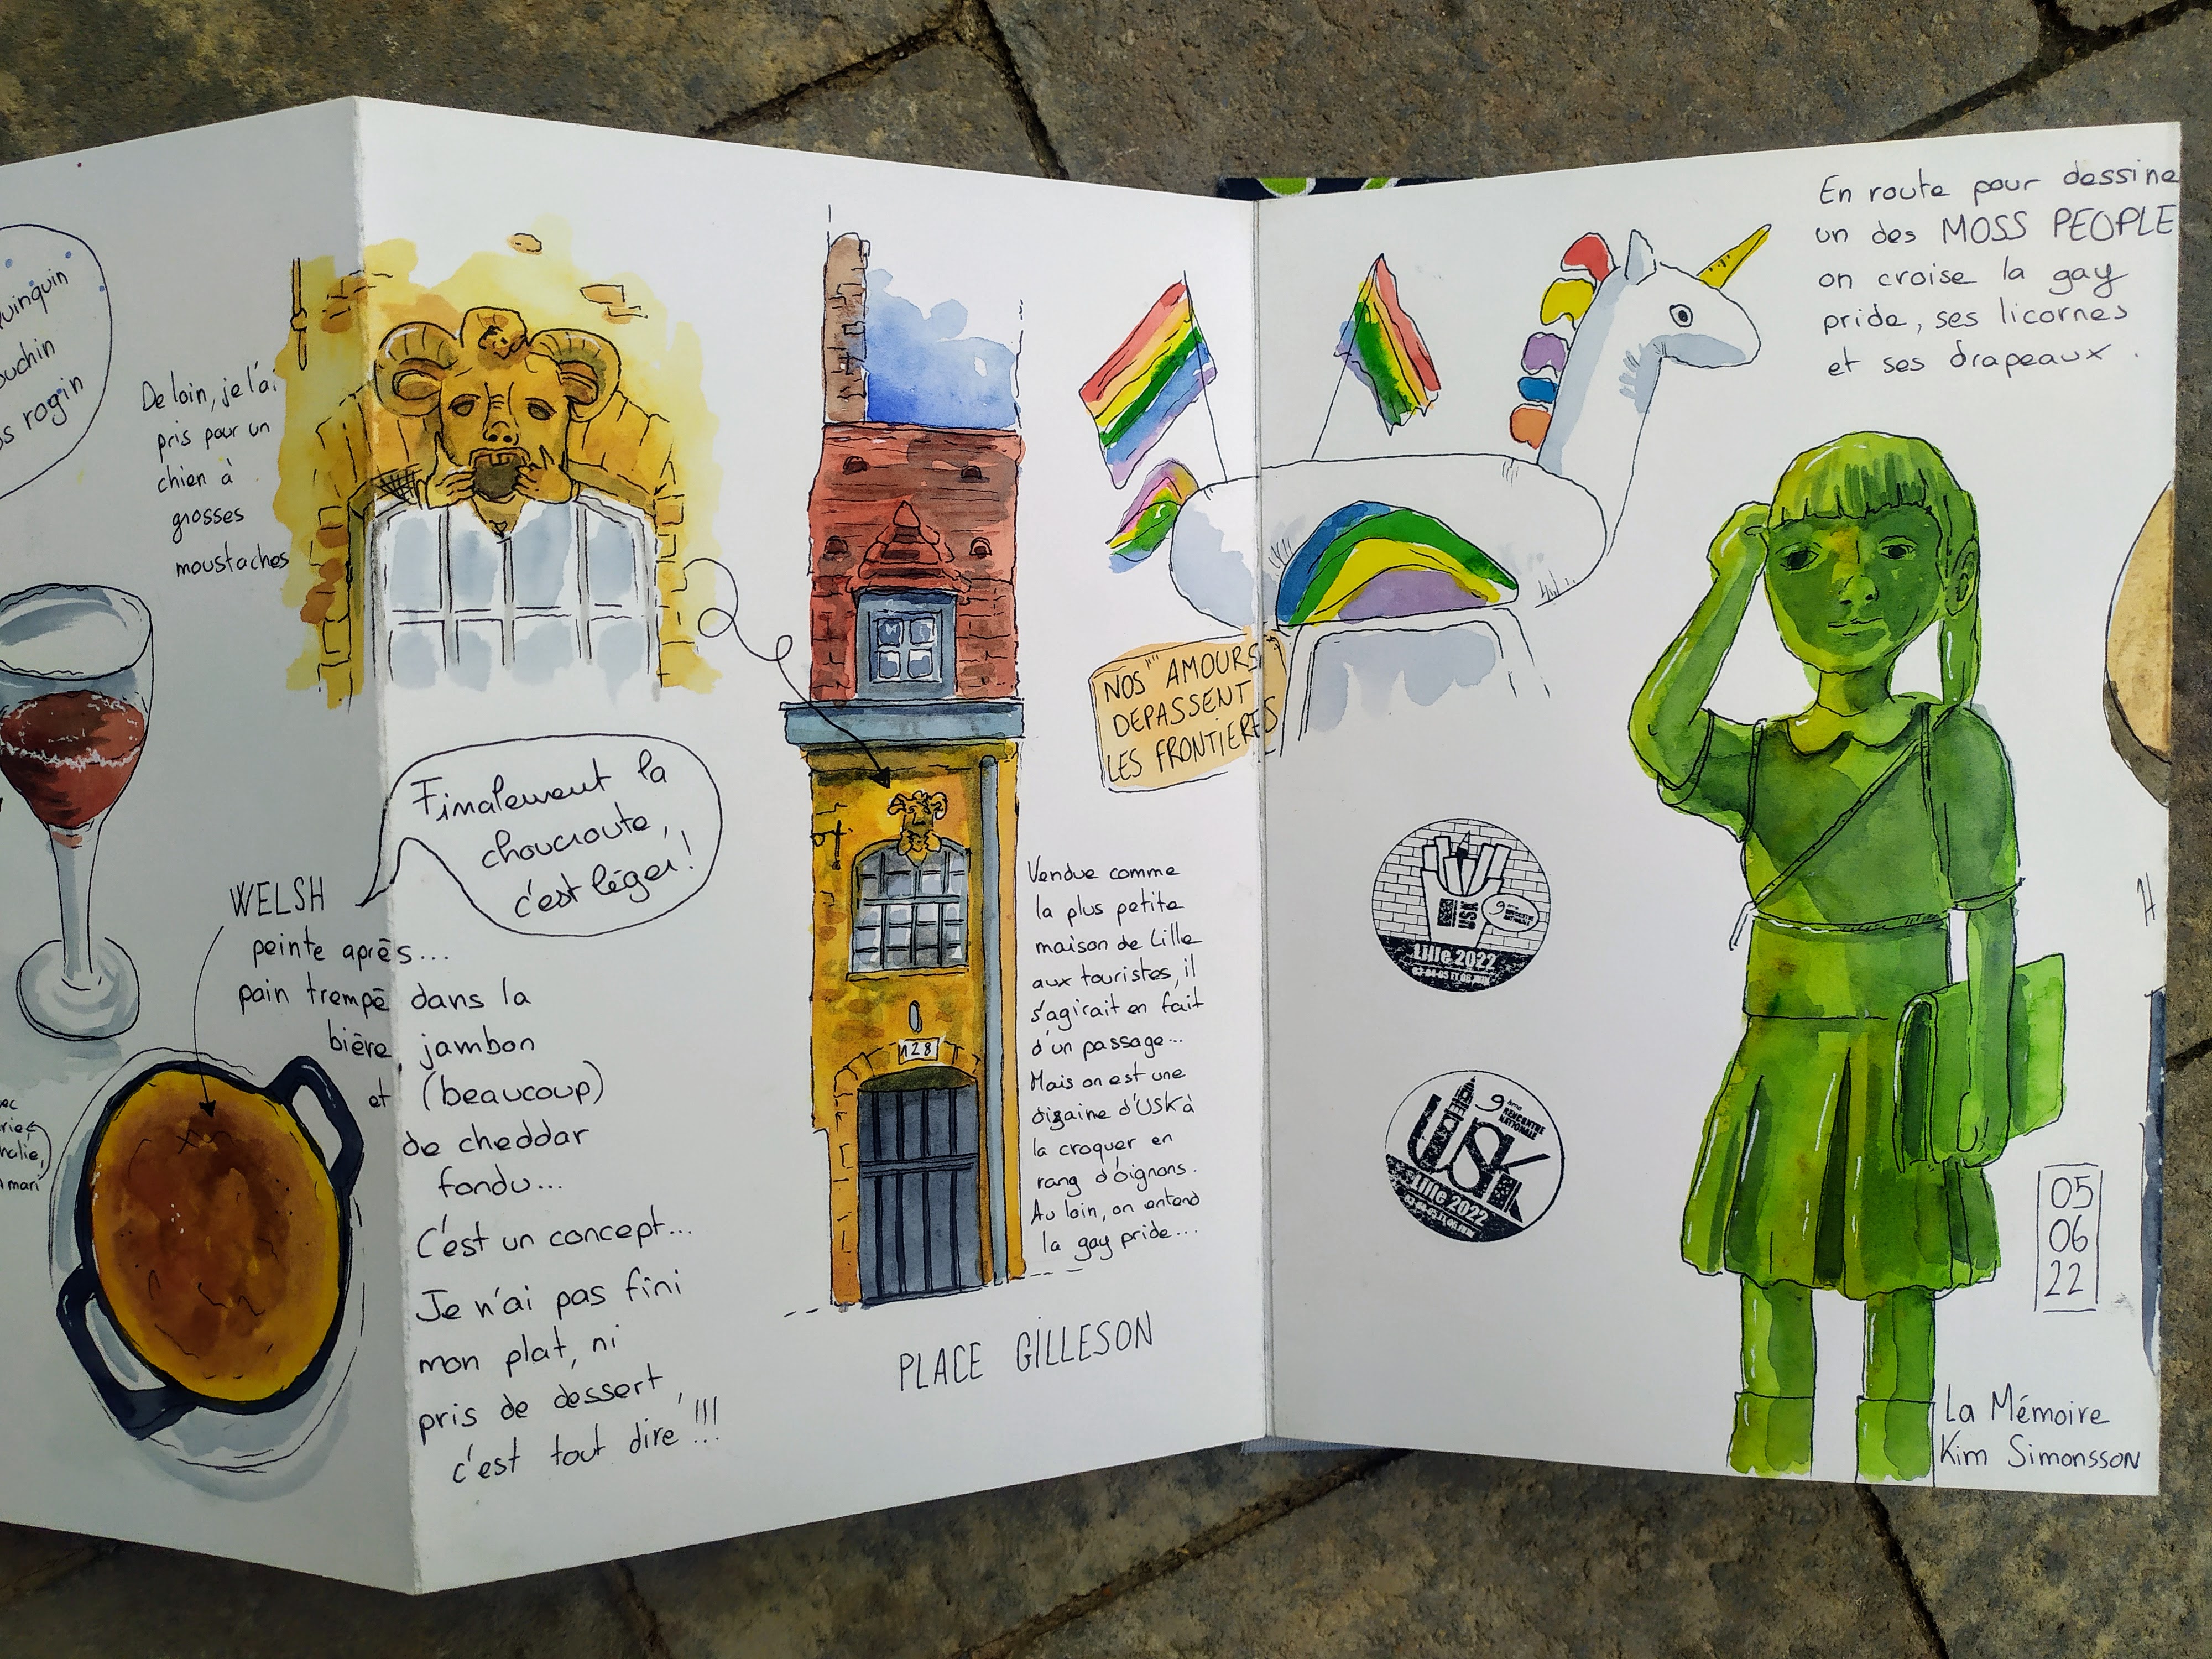 uinquin
ouchin
os rogin
De loin, je l'ai
pris pour un
chien à
grosses
moustaches
Finalement la
choucroute,
c'est léger!
WELSH
peinte après...
pain trempé dans la
bière, jambon
et (beaucoup)
de cheddar
fondu...
C'est un concept...
Je n'ai pas fini
mon plat, ni
pris de dessert,
c'est tout dire !!!
nalie,
mari
128
Vendue comme
la plus petite
maison de Lille
aux touristes, il
s'agirait en fait
d'un passage...
Mais on est une
dizaine d'USK à
la croquer en
rang d'oignons.
Au loin, on entend
la gay pride...
PLACE GILLESON
NOS "AMOURS"
DEPASSENT
LES FRONTIERES
En route pour dessine
un des MOSS PEOPLE
on croise la gay
pride, ses licornes
et ses drapeaux.
USK
9ème
RENCONTRE
NATIONALE
Lille 2022
03-04-05 ET 06 JUIN
9ème
RENCONTRE
NATIONALE
USK
Lille 2022
03-04-05 ET 06 JUIN
05
06
22
La Mémoire
Kim Simonsson